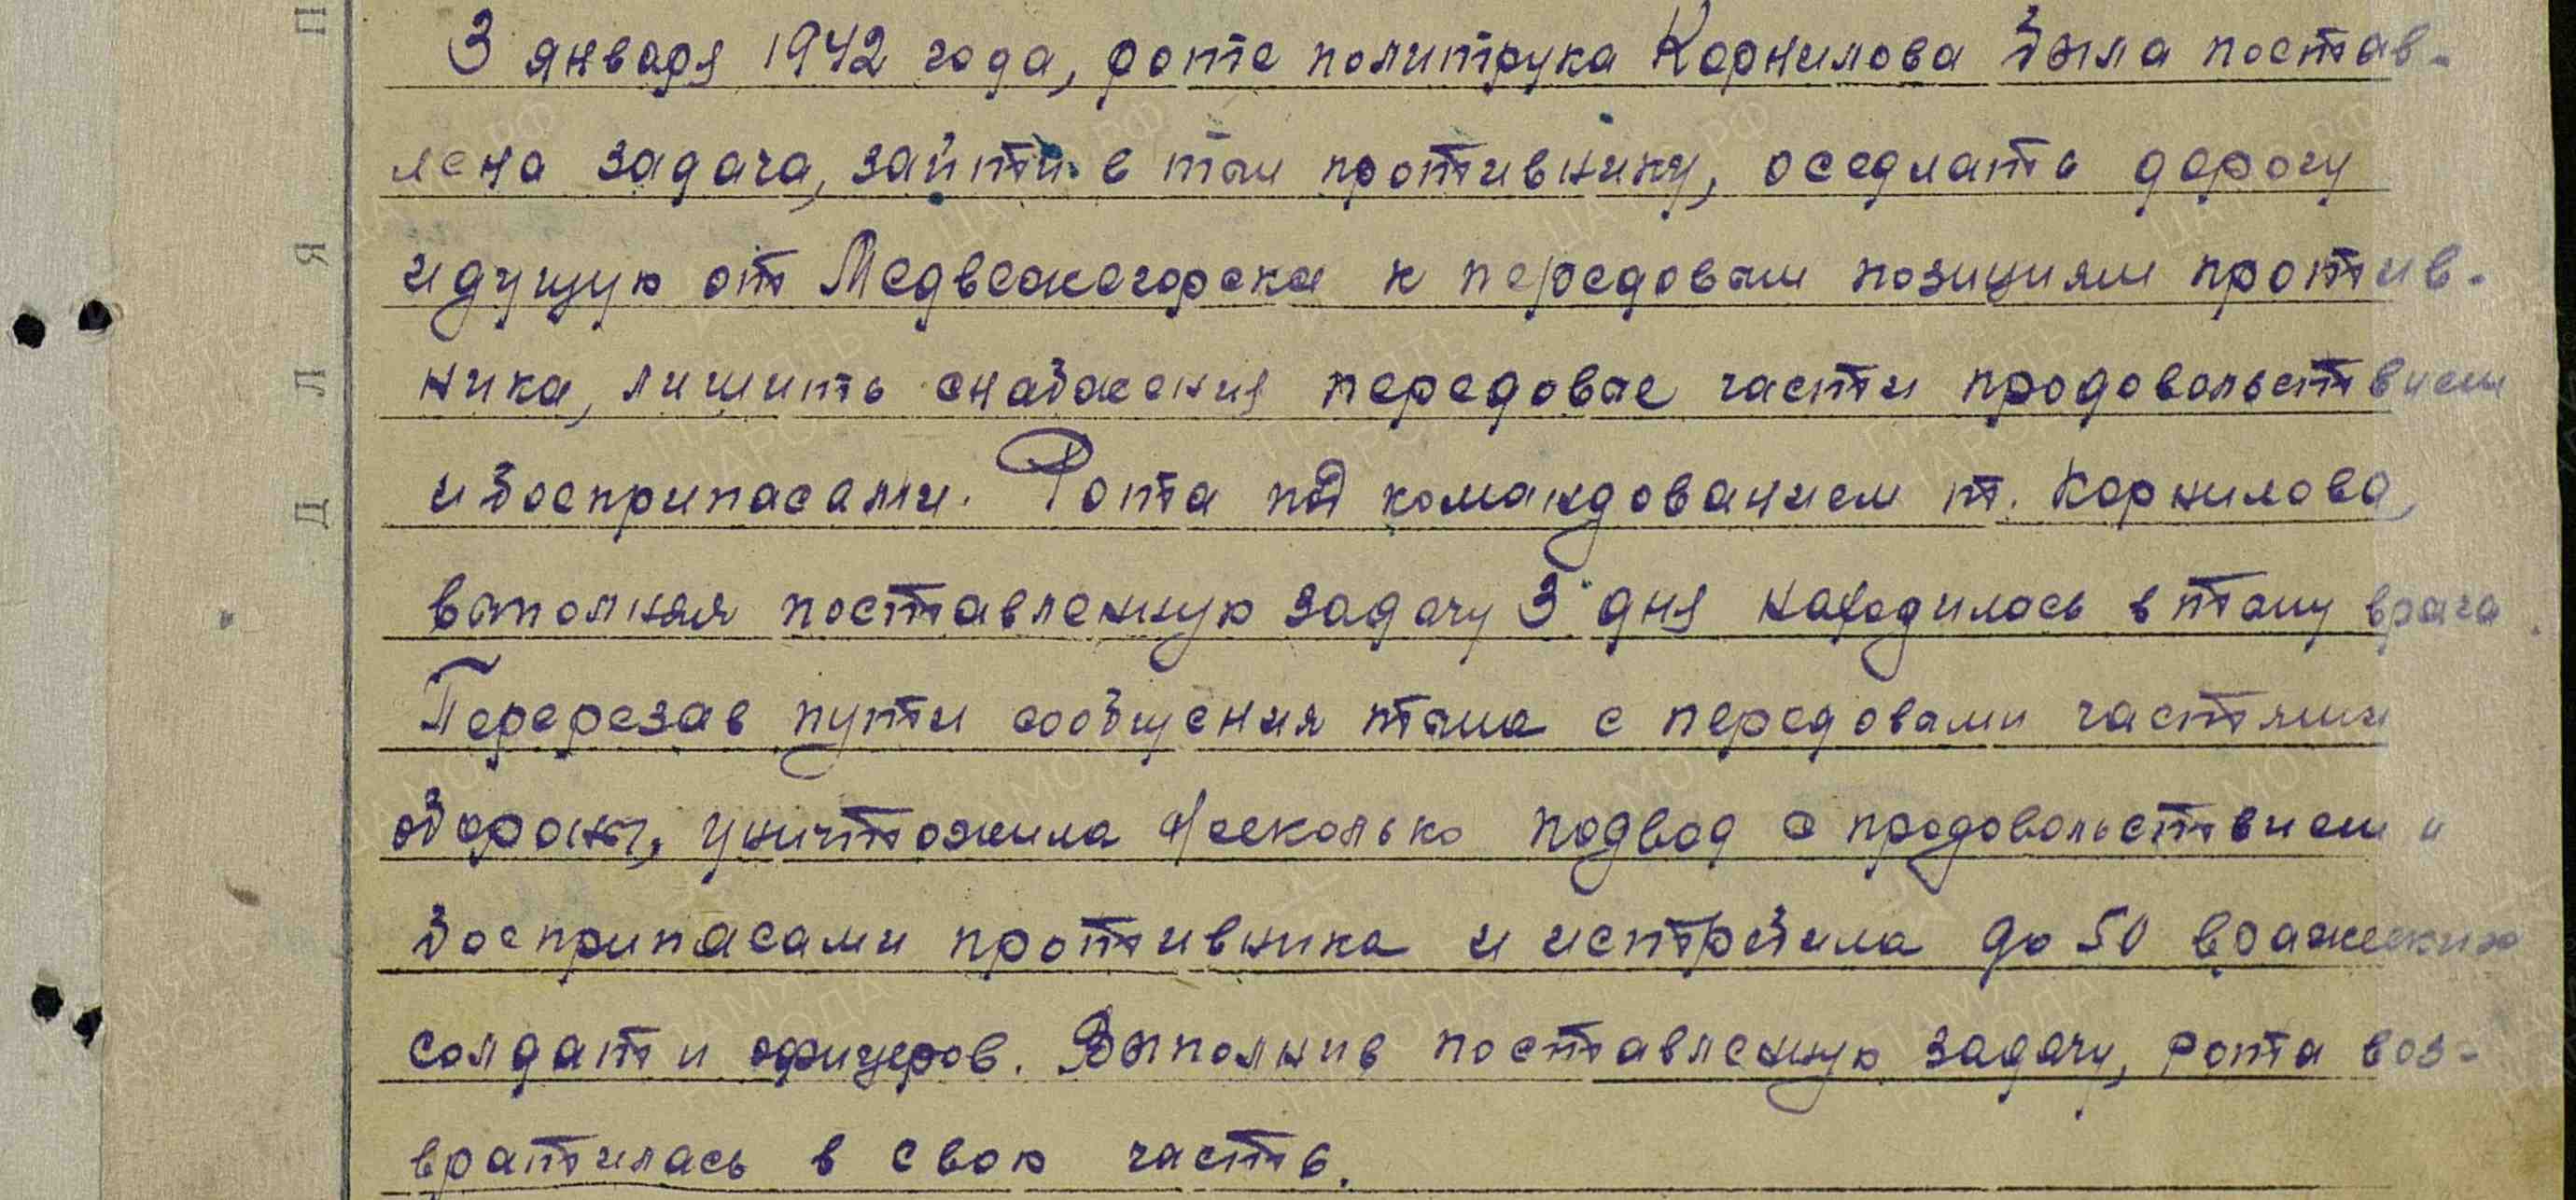 3 января 1942 года, роте политрука Корнилова была постав-
лена задача, зайти в тыл противнику, оседлать дорогу
идущую от Медвежегорска к передовым позициям против-
ника, лишить снабжения передовые части продовольствием
и боеприпасами. Рота под командованием т. Корнилова,
выполняя поставленную задачу 3 дня находилась в тылу врага.
Перерезав пути сообщения тыла с передовыми частями
обороны, уничтожила несколько подвод с продовольствием и
боеприпасами противника и истребила до 50 вражеских
солдат и офицеров. Выполнив поставленную задачу, рота воз-
вратилась в свою часть.
Д Л Я П